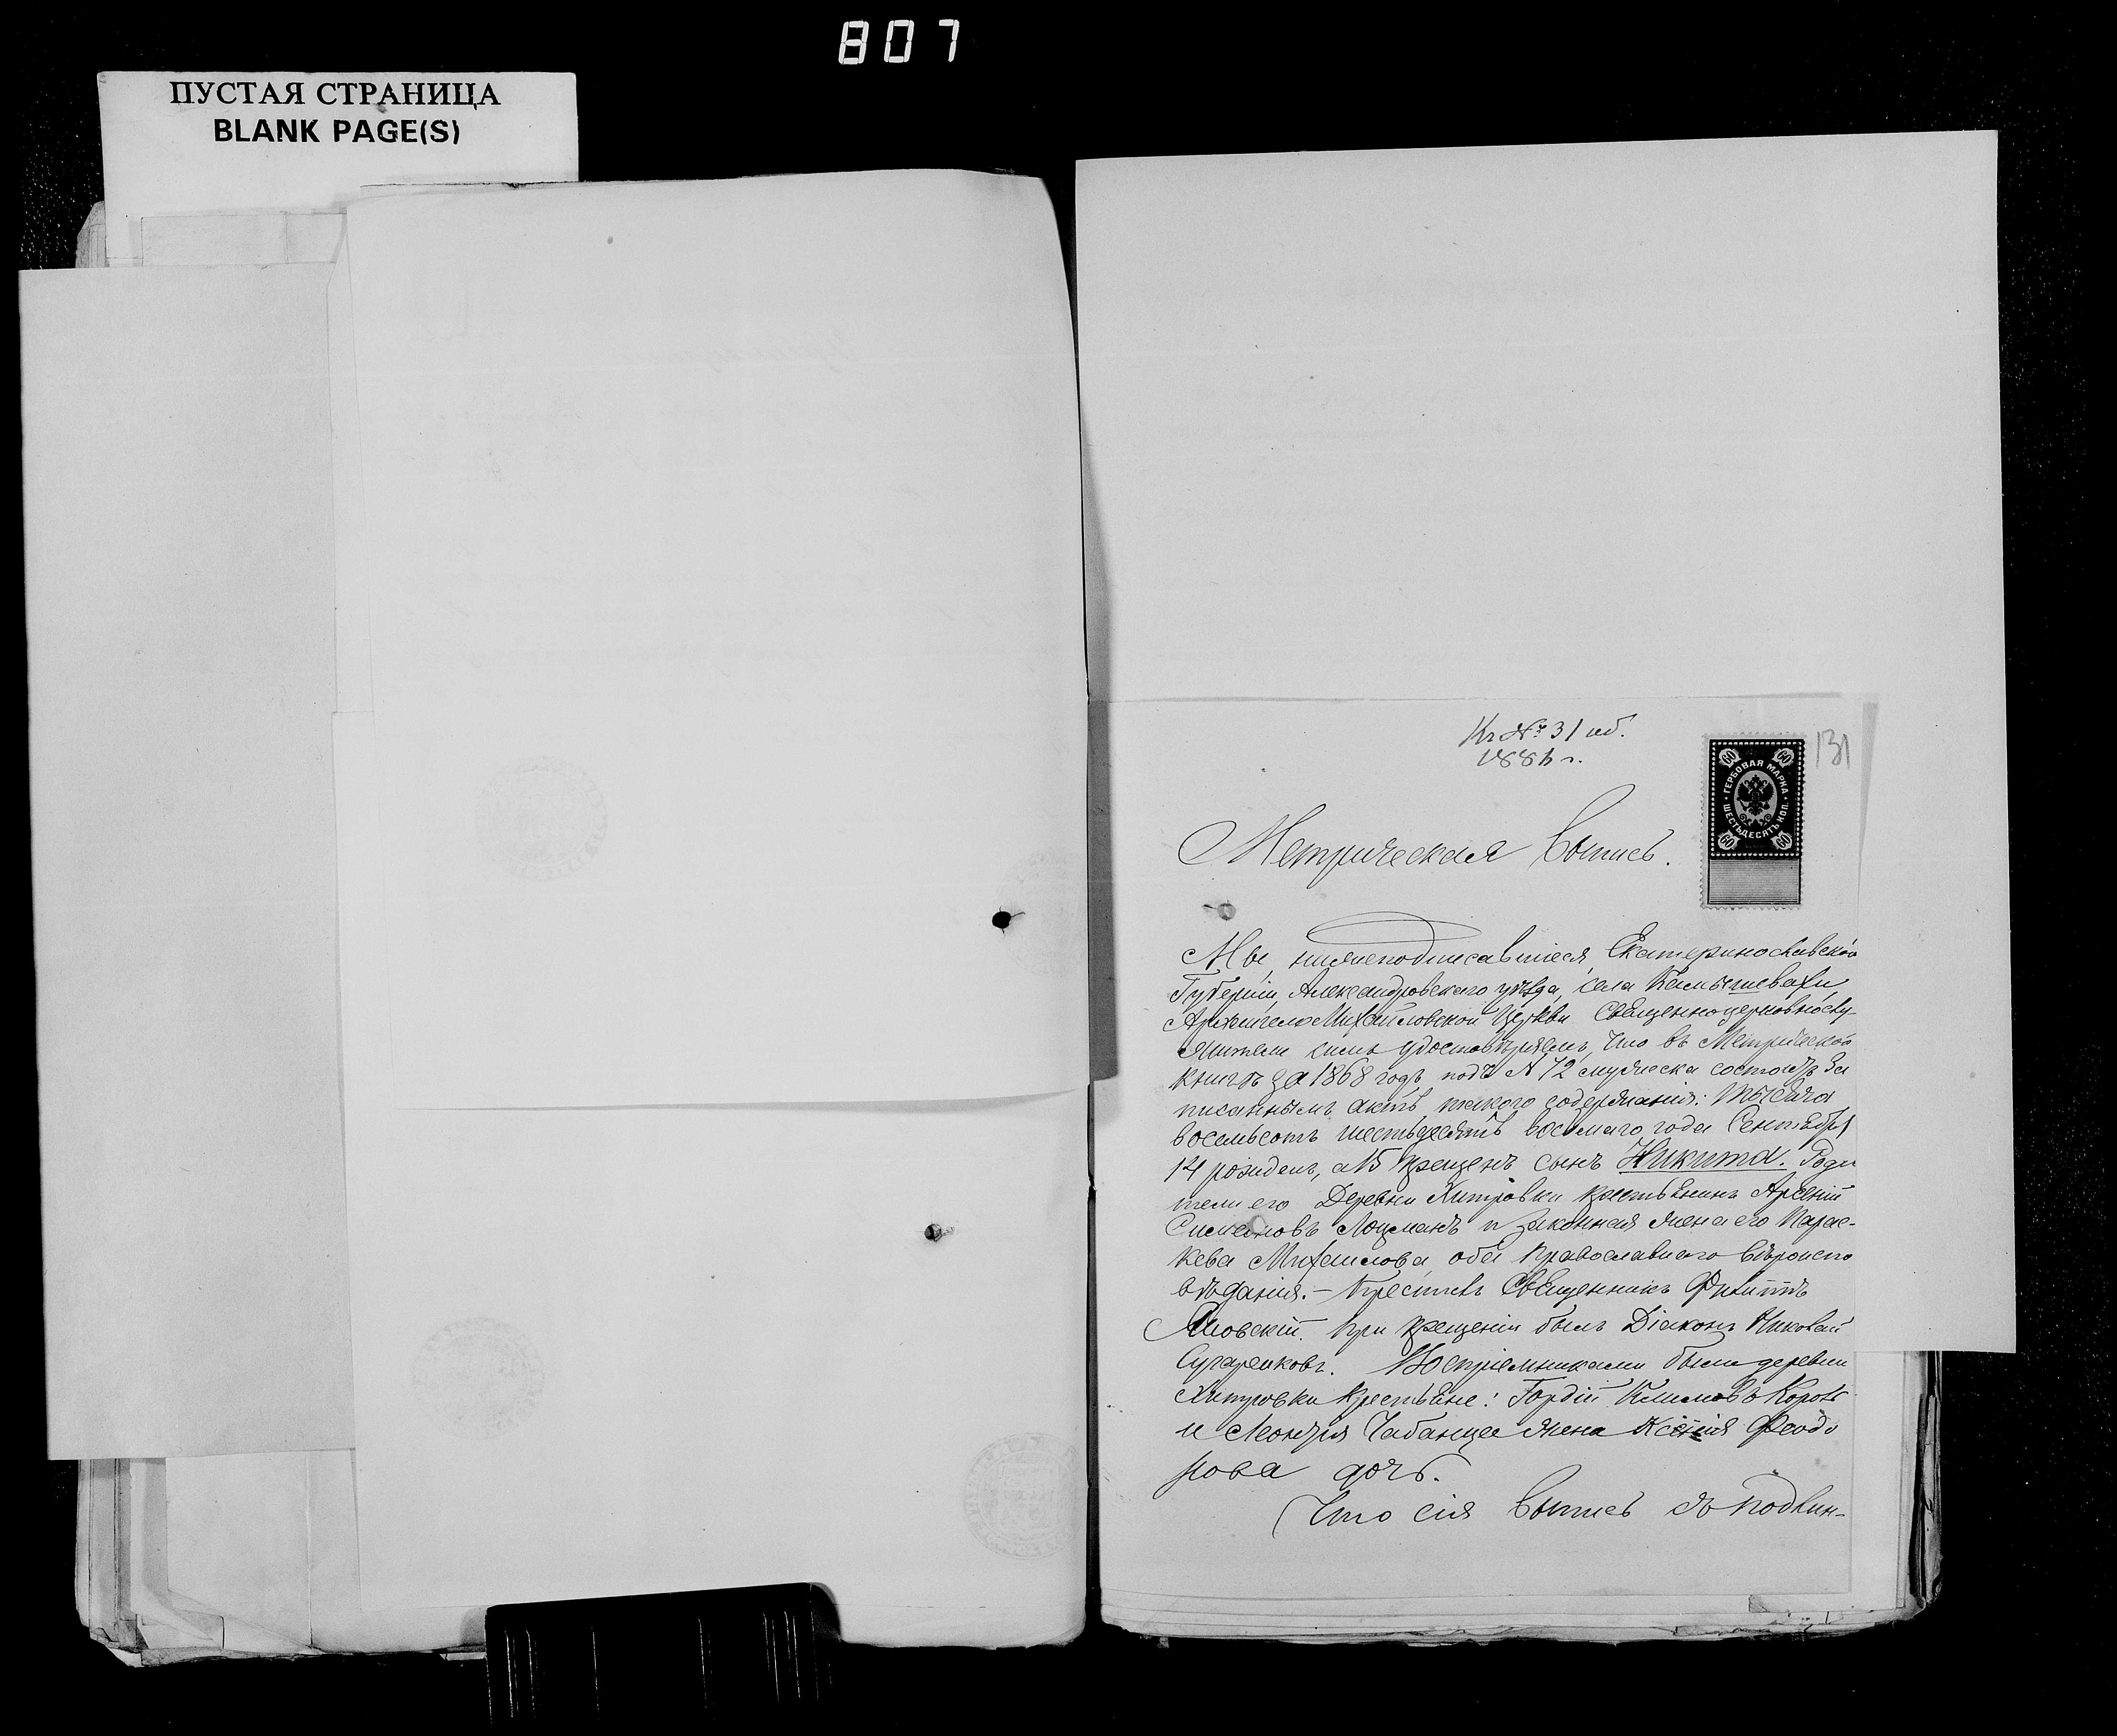 807
ПУСТАЯ СТРАНИЦА
BLANK PAGE(S)
Кг № 31 об.
131
ГЕРБОВАЯ МАРКА
ШЕСТЬДЕСЯТЪ КОП.
60 60
60 60
Метрическая Выпись.
Мы, нижеподписавшіеся, Екатеринославской
Губерніи, Александровского уѣзда, села Камышевахи,
Архангело Михайловской Церкви Священноцерковнослу-
жители симъ удостовѣряемъ, что въ Метрической
книгѣ за 1868 годъ подъ № 72 мужеска состоитъ за
писаннымъ актъ такого содержанія: Тысяча
восемьсотъ шестьдесятъ восьмаго года Сентября
14 рожденъ, а 15 крещенъ сынъ Никита. Роди
тели его Деревни Хитровки крестьянинъ Арсеній
Симеоновъ Лоцманъ и законная жена его Парас-
кева Михаилова, оба православнаго вѣроиспо
вѣданія. – Крестилъ Священникъ Филиппъ
Яновскій. При крещеніи былъ Діаконъ Николай
Сугаренковъ. Воспріемниками были деревни
Хитровки крестьяне: Гордій Климовъ
и Леонтія Чабанца жена Ксенія Феодо
рова дочь.
Что сія Выпись съ подлин-